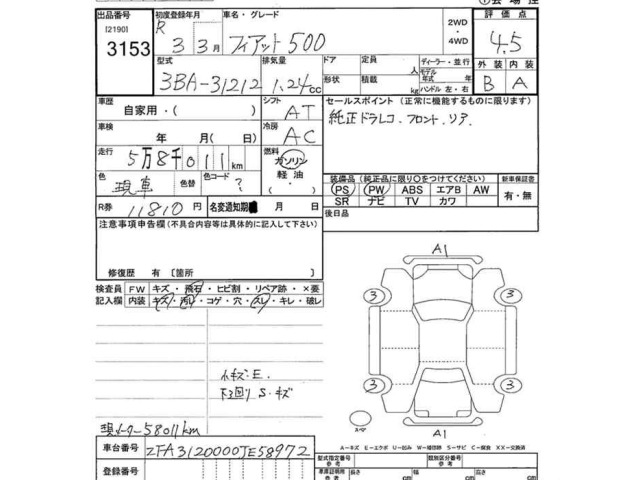 出品番号 初度登録年月 車名・グレード 評価点
[2190] R 2WD
3153 3年3月 フィアット500 ・4WD 4.5
型式 排気量 ドア 定員 ディーラー・並行 外装 内装
3BA-31212 1.24cc 形状 積載 人 kg モデル年式 年 ハンドル 左・右 B A
車歴 自家用・( ) シフト AT セールスポイント(正常に機能するものに限ります)
車検 年 月( 日) 冷房 AC 純正ドラレコ フロント、リア
走行 5万8千011km 燃料 ガソリン
軽油
・
色 現車 色替 色コード ? 装備品(純正品に限り○をつけてください) 新車保証書
PS PW ABS エアB AW 有・無
R券 11810円 名変通知期 月 日 SR ナビ TV カワ
後日品
注意事項申告欄(不具合内容等は具体的に記入して下さい)
A1
修復歴 有 [箇所 ]
検査員 FW キズ・飛石・ヒビ割・リペア跡・×要
記入欄 内装 キズ・汚レ・コゲ・穴・スレ・キレ・破レ
3 3
小キズ・E.
下廻り S・キズ
3 3
現メーター58011km
A1
A=キズ E=エクボ U=凹み W=補修跡 S=サビ C=腐食 XX=交換済
車台番号 ZFA3120000JE58972 型式指定番号 参考 類別区分番号 参考
登録番号 車庫証明用 参考 長さ cm 幅 cm 高さ cm